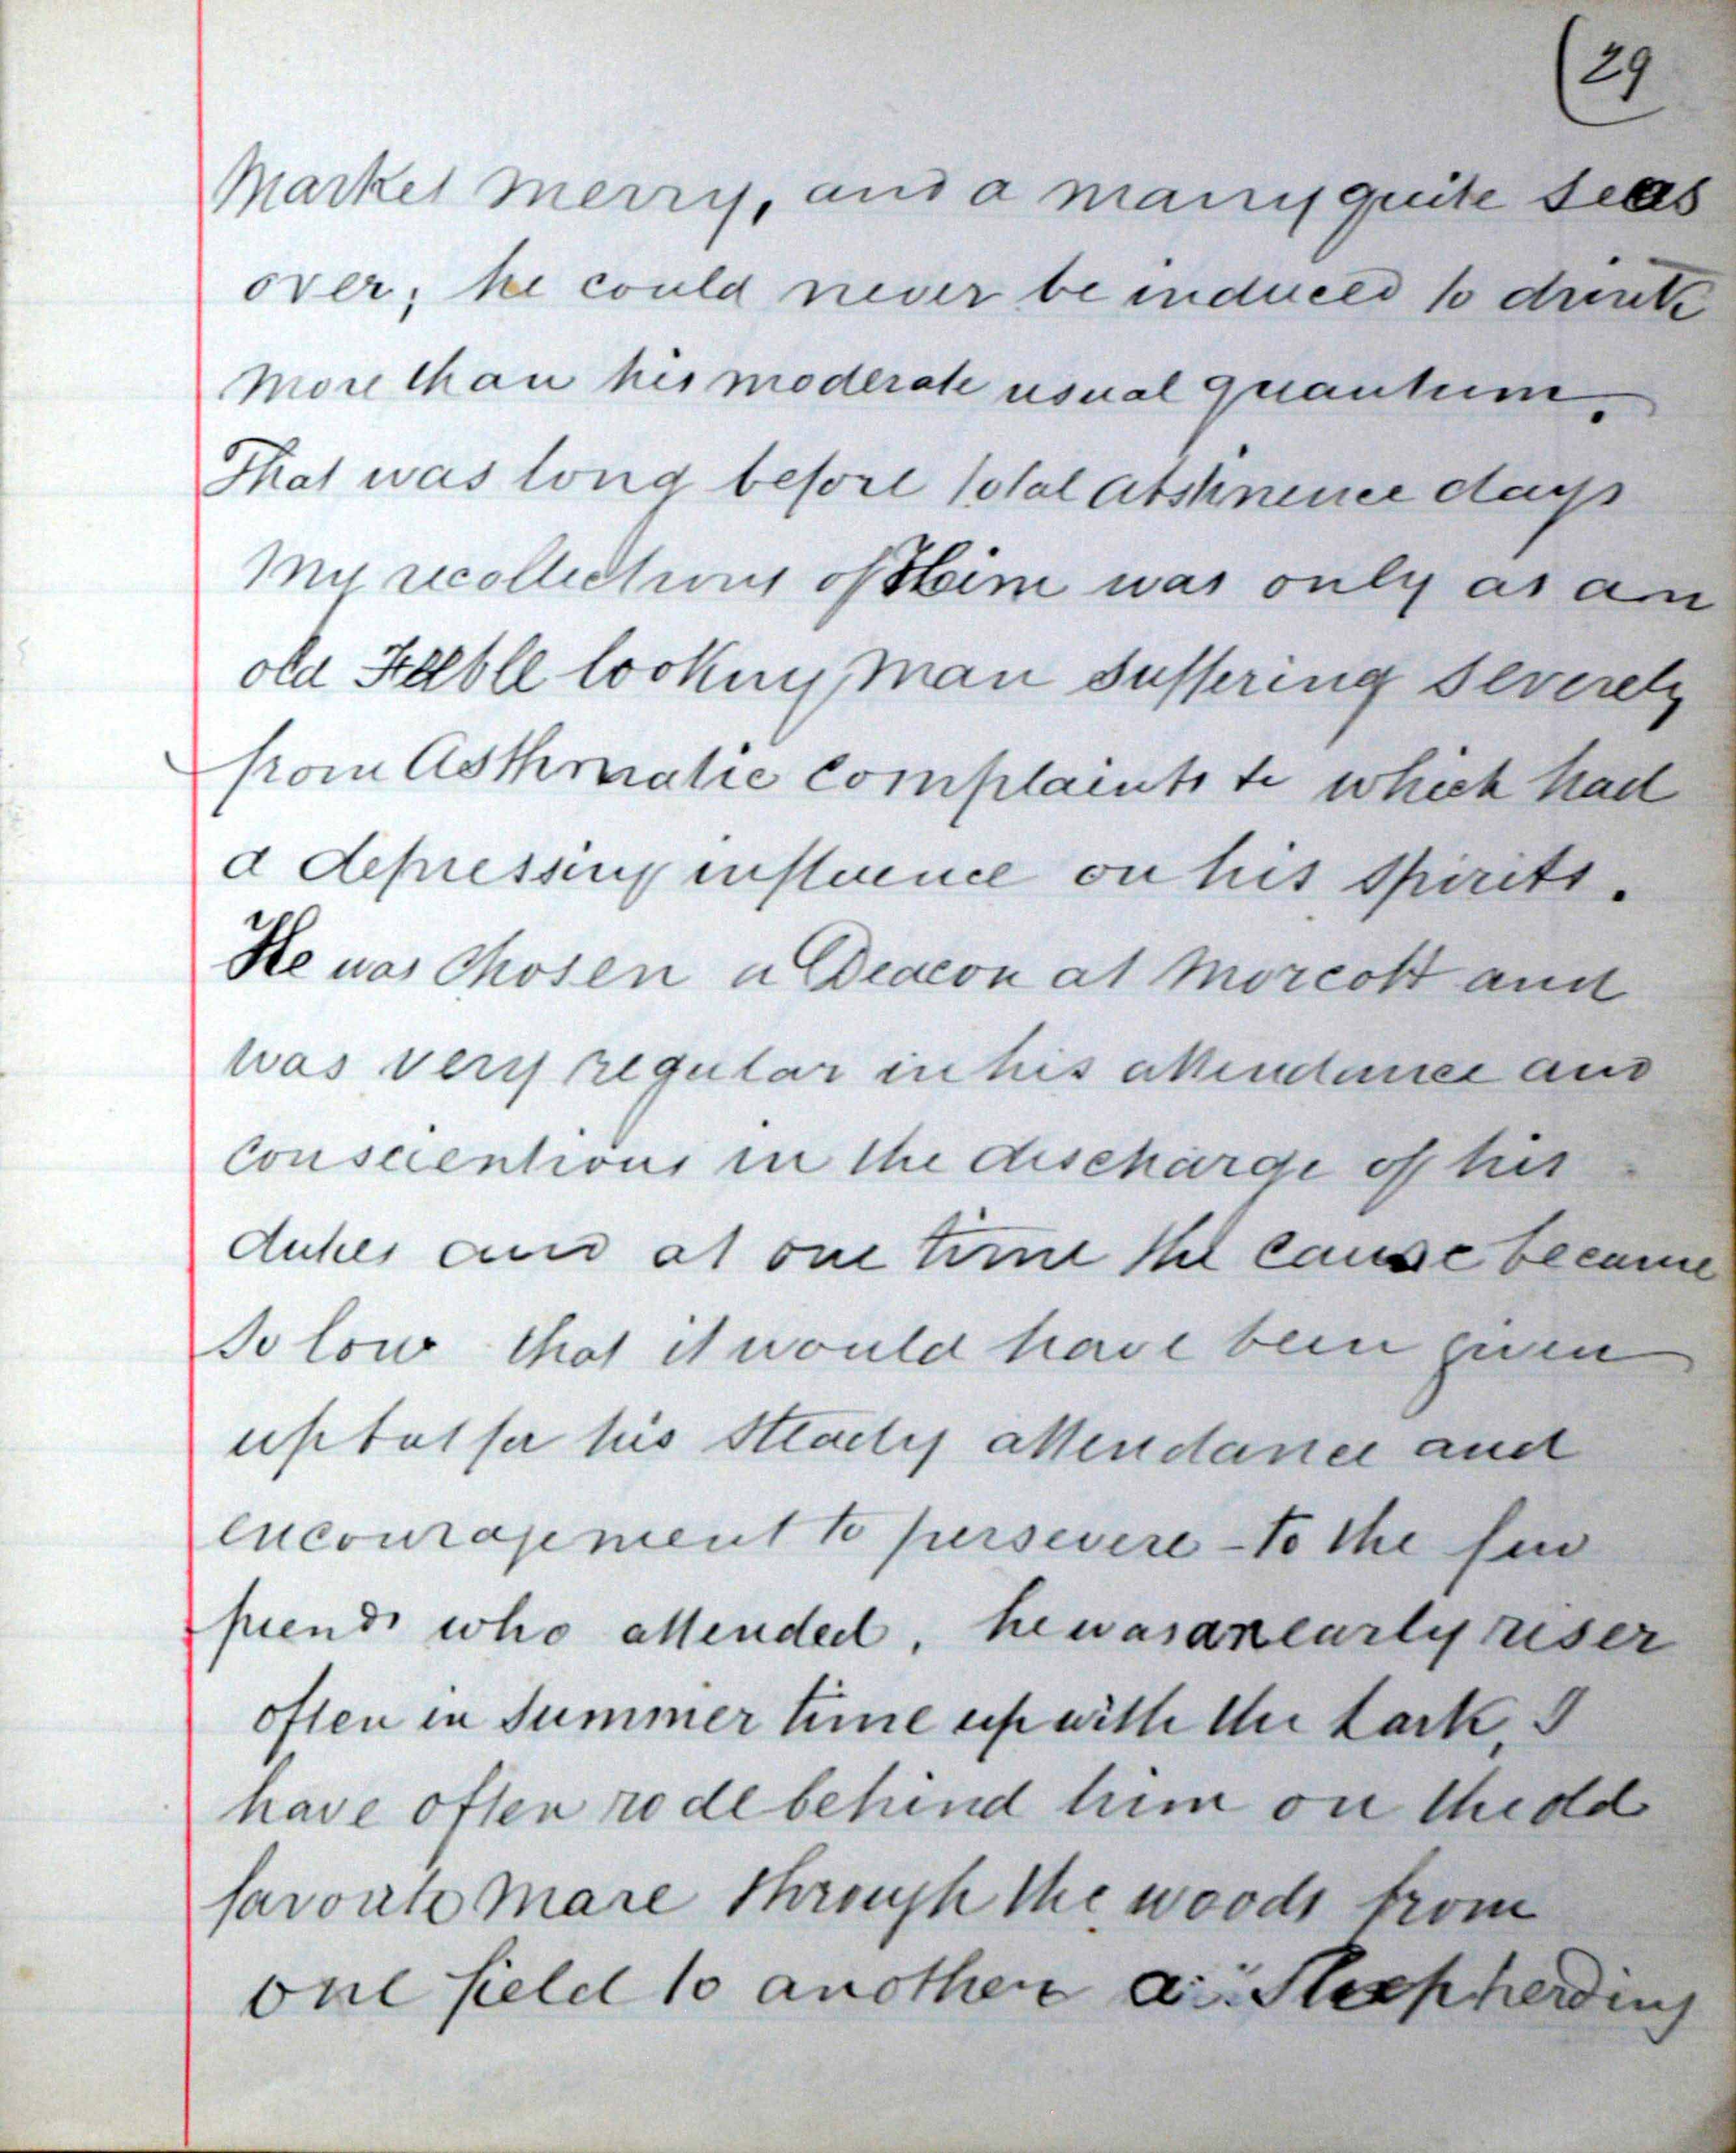 (29
Market merry, and a many quite seas
over; he could never be induced to drink
more than his moderate usual quantum.
That was long before total abstinence days
My recollections of Him was only as an
old Feeble looking man suffering severely
from Asthmatic complaints te which had
a depressing influence on his spirits.
He was chosen a Deacon at Morcott and
was very regular in his attendance and
conscientious in the discharge of his
duties and at one time the cause became
so low that it would have been given
up but for his steady attendance and
encouragement to persevere - to the few
friends who attended, he was an early riser
often in summer time up with the Lark, I
have often rode behind him on the old
favorite mare through the woods from
one field to another a "Sheepherding